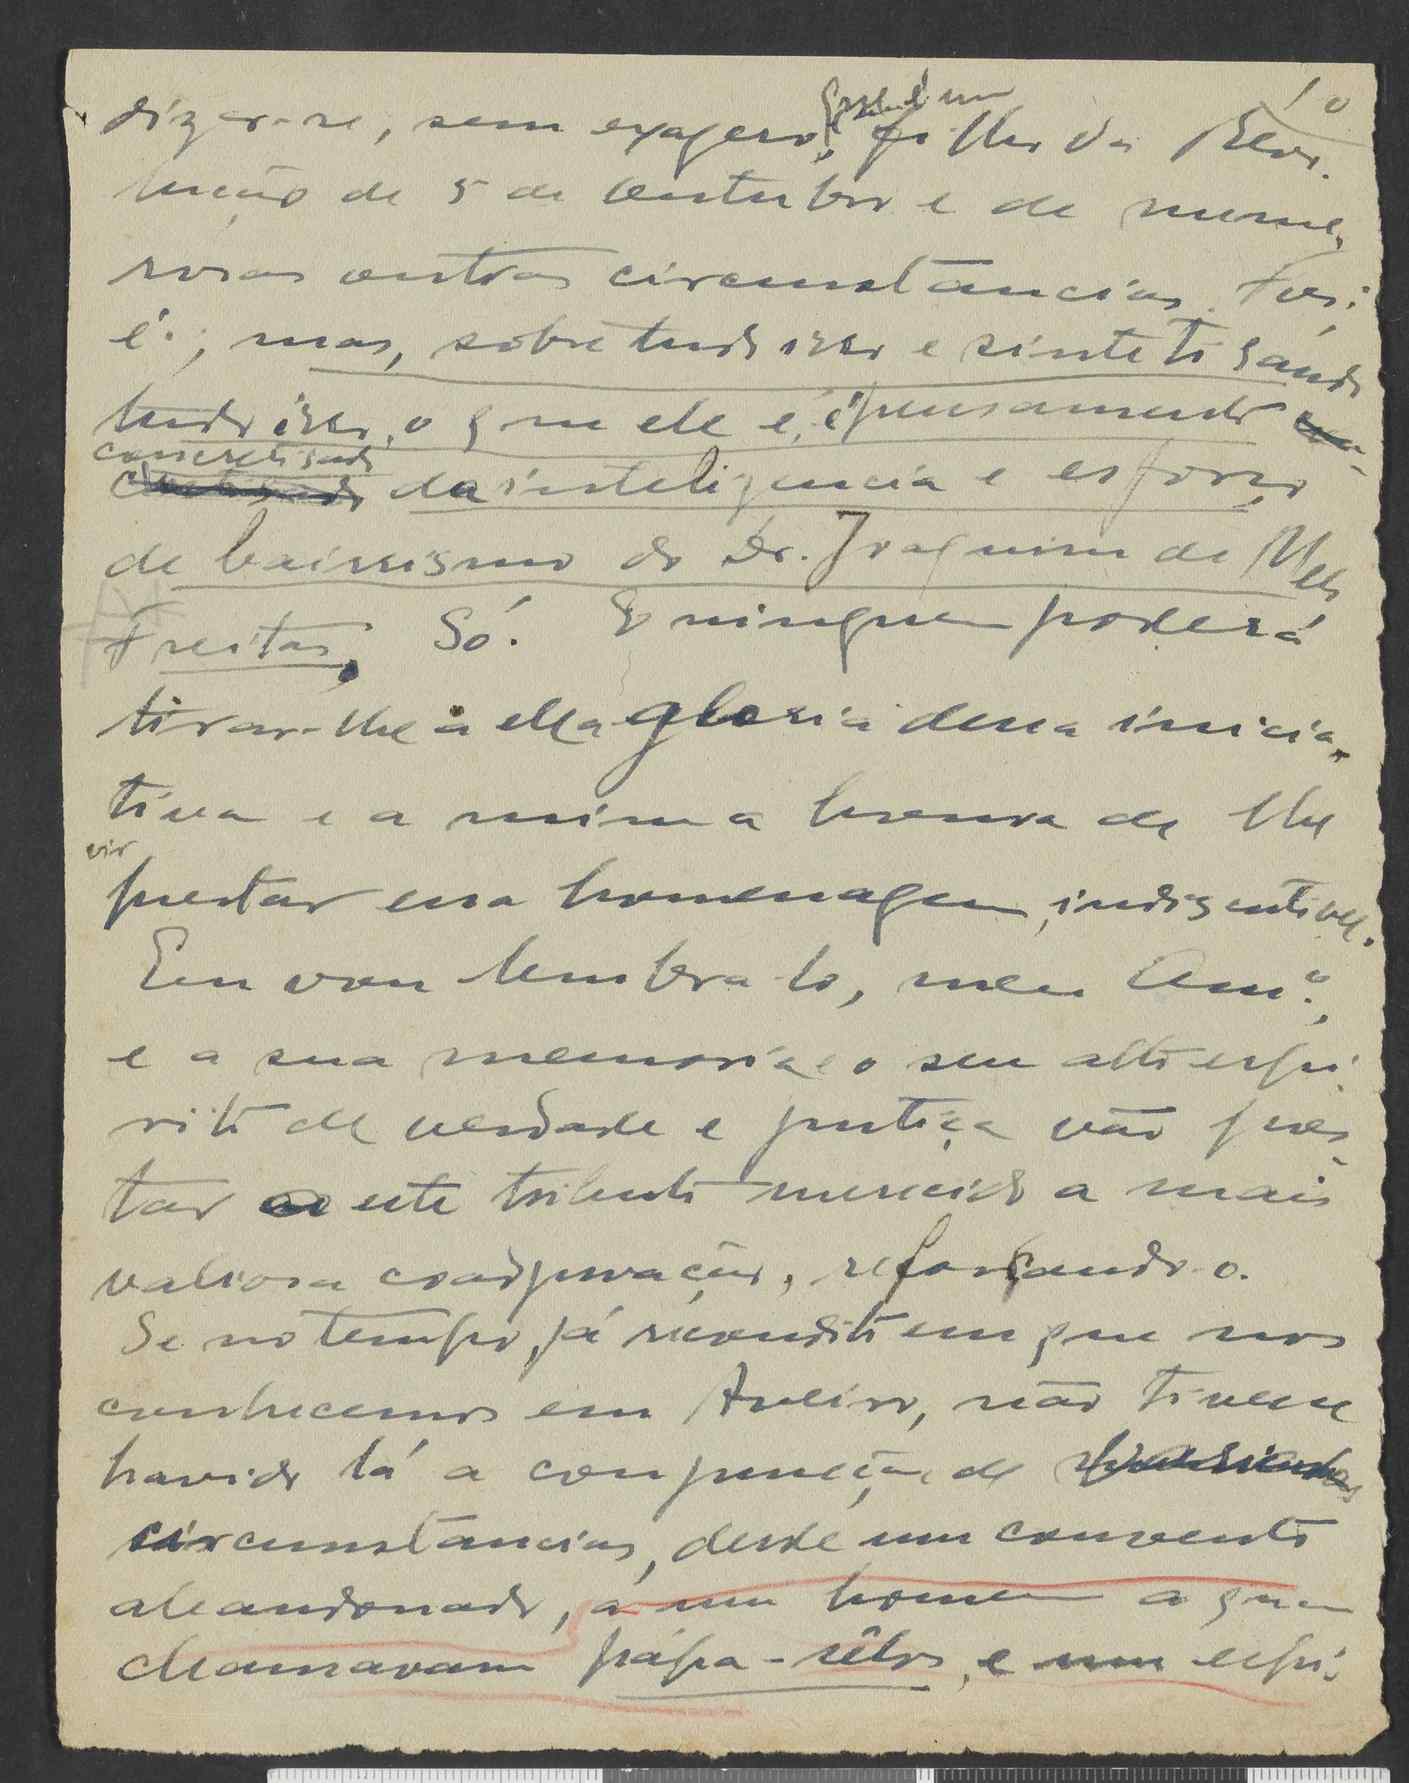 10
que é um
dizer-se, sem exagero, filho da Revo-
lução de 5 de Outubro e de nume-
rosas outras circumstancias. Foi:
é:; mas, sobretudo isso e sintetisando
tudo isso, o que ele é, é pensamento
concretisado
da inteligencia e esforço
de bairrismo do Dr. Joaquim de Melo
Freitas. Só. E ninguem poderá
tirar-lhe a ella gloria dessa inicia-
tiva e a mim a honra de lhe
vir
prestar essa homenagem, indiscutivel.
Eu vou lembra-lo, meu Amº,
e a sua memoria e o seu alto espi-
rito de verdade e justiça vão pres-
tar a este tributo merecido a mais
valiosa coadjuvação, reforçando-o.
Se no tempo, já recondito em que nos
conhecemos em Aveiro, não tivesse
havido lá a conjuncção de
circumstancias, desde um convento
abandonado, a um homem a quem
chamavam pápa-sêlos, e um espi-